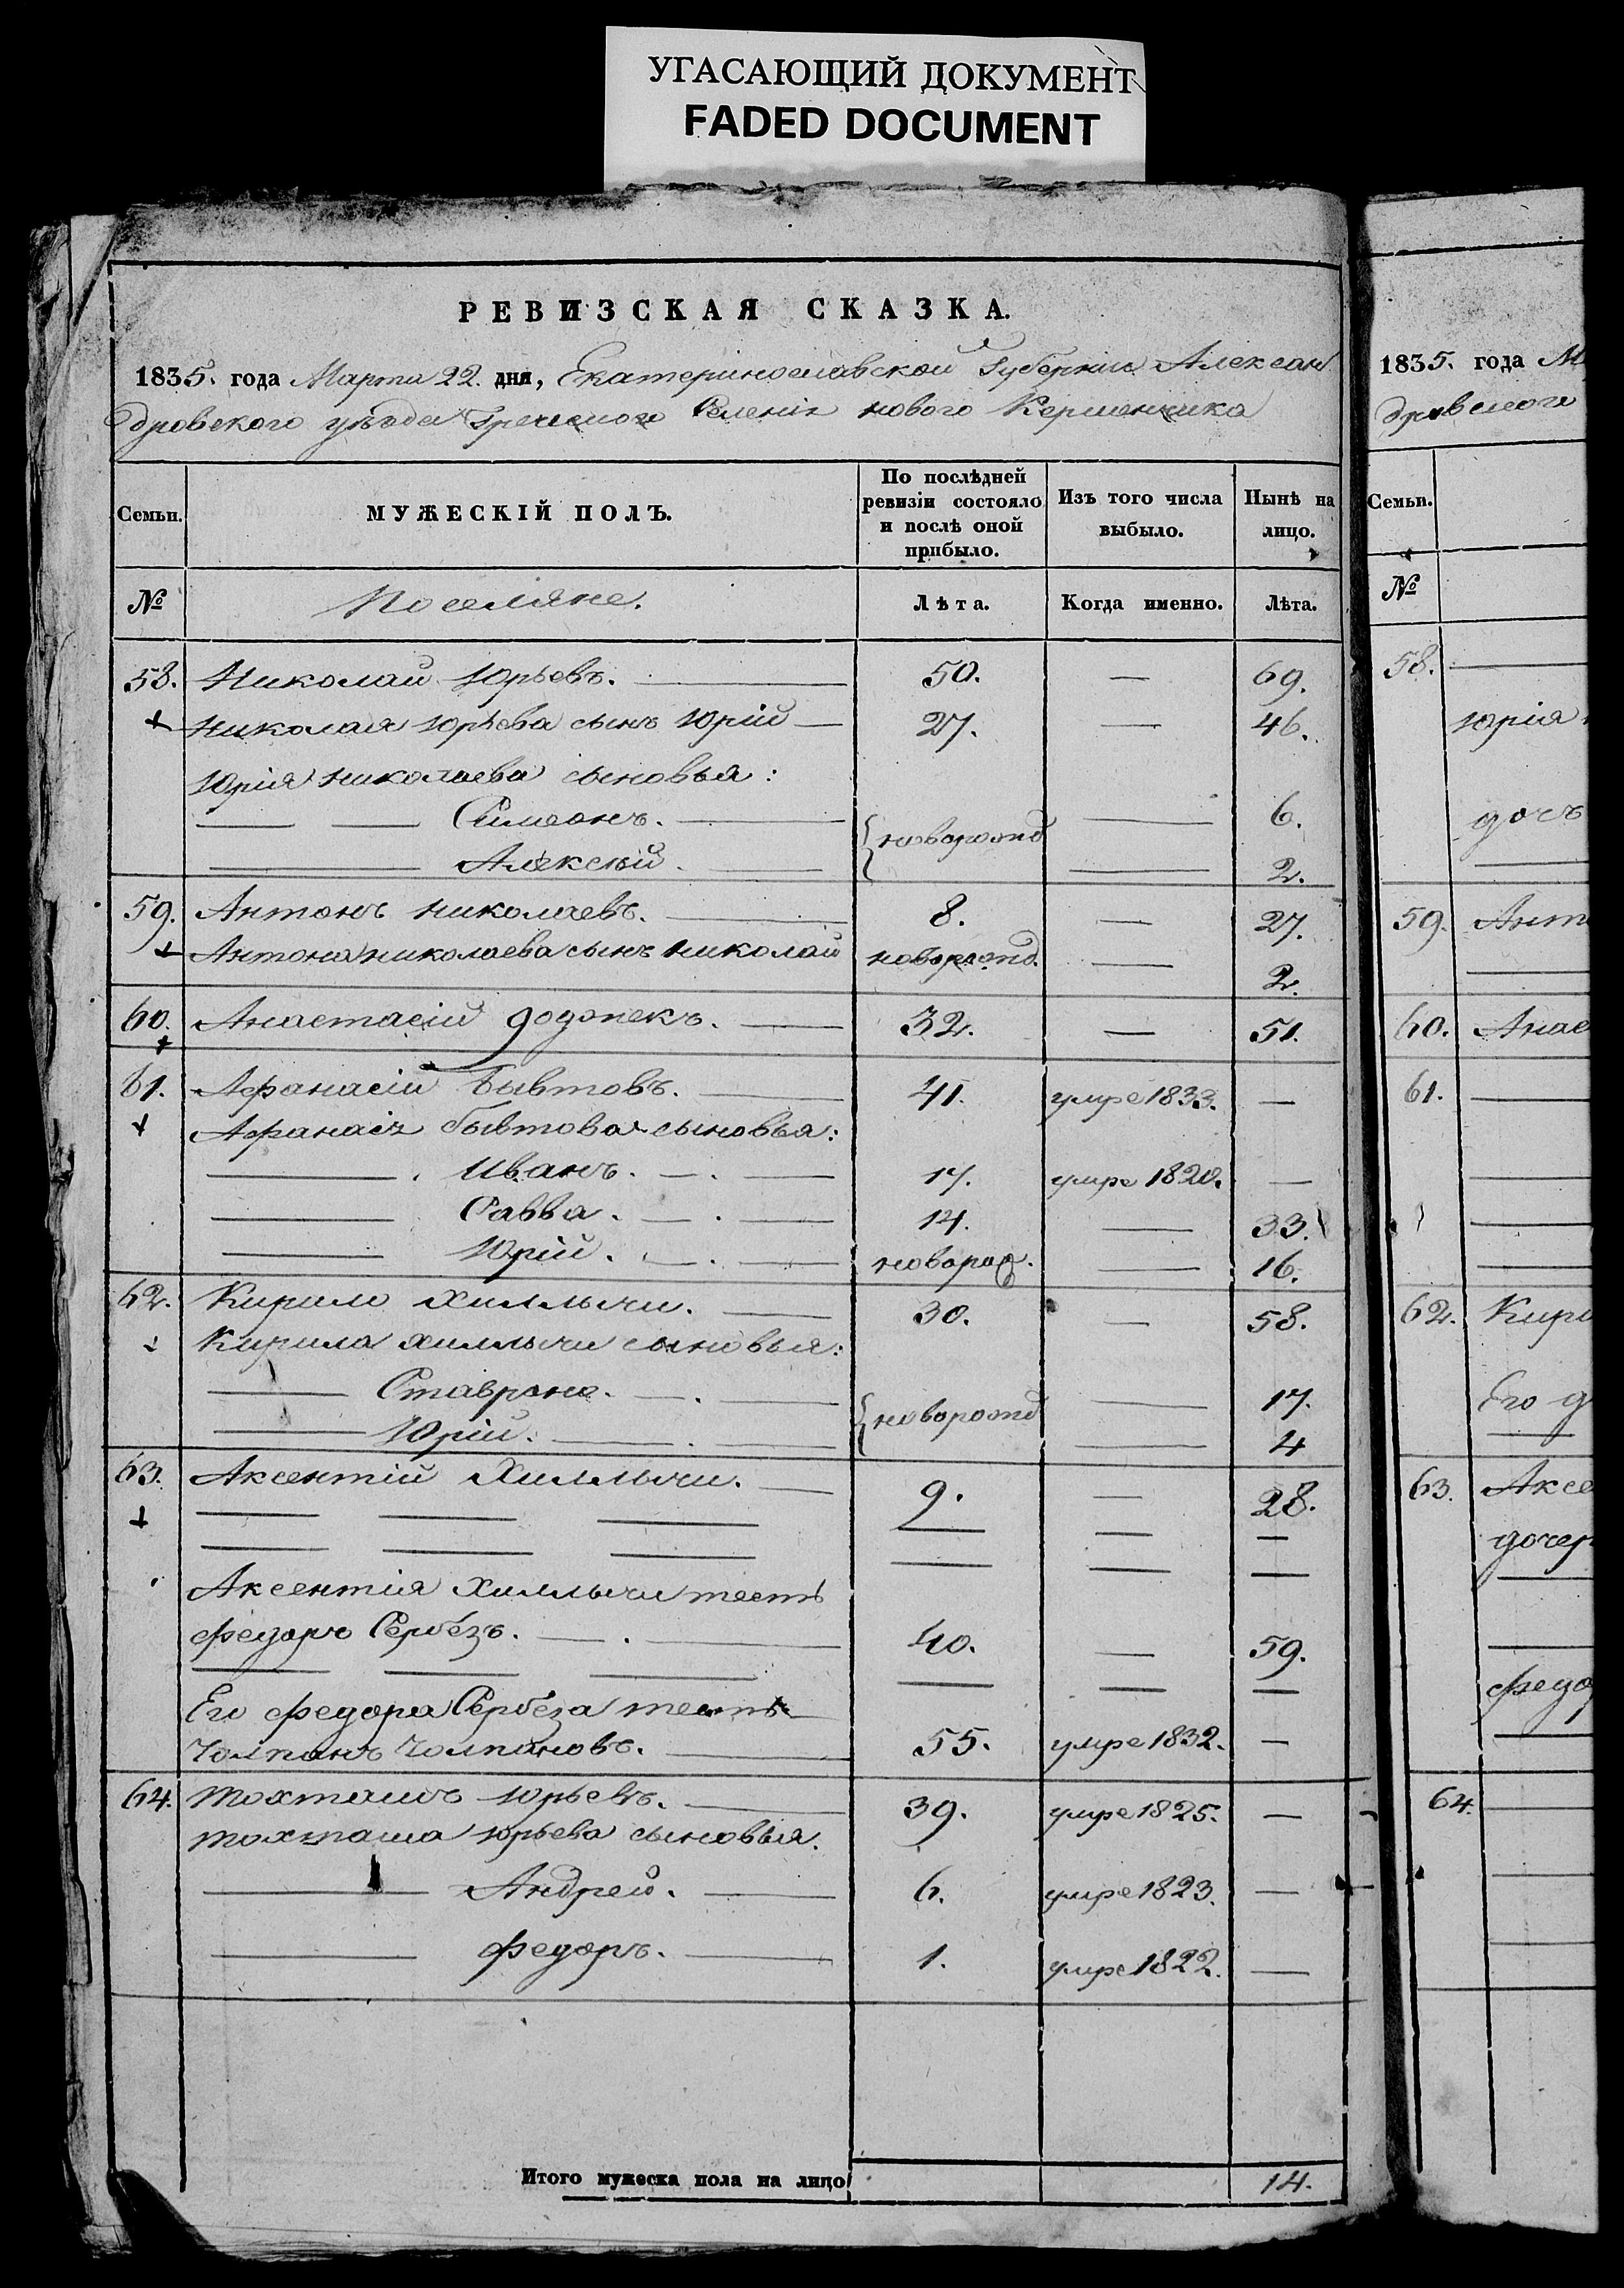 УГАСАЮЩИЙ ДОКУМЕНТ
FADED DOCUMENT
РЕВИЗСКАЯ СКАЗКА.
1835. года Марта 22. дня, Екатеринославской Губерніи Алексан
дровского уѣзда Греческого Селенія нового Керменчика
Семьи. МУЖЕСКІЙ ПОЛЪ. По послѣдней ревизіи состояло и послѣ оной прибыло. Изъ того числа выбыло. Нынѣ на лицо.
№ Поселяне. Лѣта. Когда именно. Лѣта.
58. Николай Юрьевъ. 50. — 69.
Николая Юрьева сынъ Юрій — 27. — 46.
Юрія Николаева сыновья:
— — Симеонъ. — новорожд — 6.
— Алексѣй. — — 2.
59. Антонъ Николаевъ. — 8. — 27.
Антона Николаева сынъ Николай новорожд. — 2.
60. Анастасій Додонекъ. — 32. — 51.
61. Афанасій Бывтовъ. — 41. умре 1833. —
Афанасія бывтова сыновья:
— Иванъ. — 17. умре 1820. —
— Савва. — 14. — 33.
— Юрій. — новорожд. — 16.
62. Кирило Хиллычи. — 30. — 58.
Кирила Хиллычи сыновья:
— Ставрина. — новорожд — 17.
— Юрій. — — 4
63. Аксентій Хиллычи. — 9. — 28.
— — — — — —
— — — — — —
Аксентія Хиллычи тесть
Федоръ Сербезъ. — 40. — 59.
— — — — — —
Его Федора Сербеза тесть
Чолпанъ Чолпановъ. — 55. умре 1832. —
64. Тохташъ Юрьевъ. — 39. умре 1825. —
Тохташа Юрьева сыновья.
— Андрей. — 6. умре 1823. —
— Федоръ. — 1. умре 1822. —
Итого мужеска пола на лицо 14.
1835. года М
дровского
Семьи.
№
58. —
Юрія
дочь
—
59. Анто
—
60. Анас
61. —
62. Кири
Его д
—
63. Аксе
дочер
—
—
Федо
—
64. —